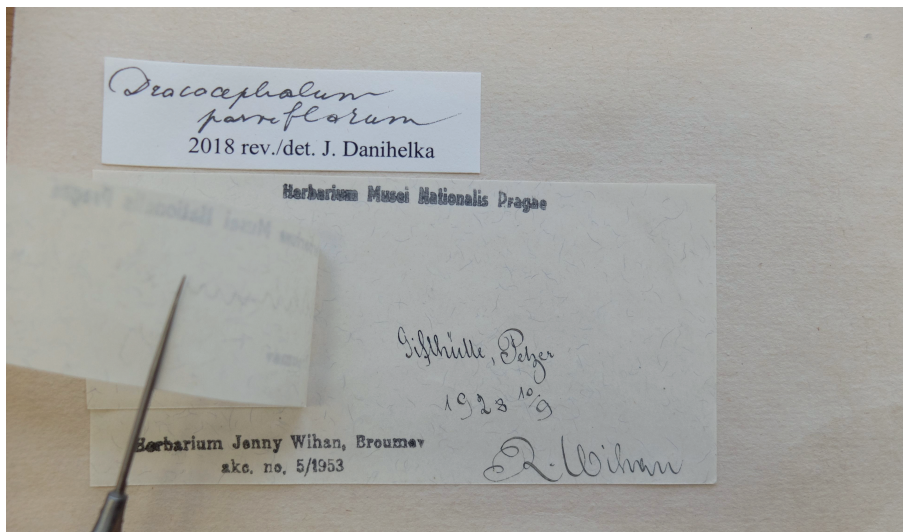 Dracocephalum
parviflorum
2018 rev./det. J. Danihelka
Herbarium Musei Nationalis Pragae
Gifthütte, Petzer
1928 10/9
Herbarium Jenny Wihan, Broumov
akc. no. 5/1953
R. Wihan